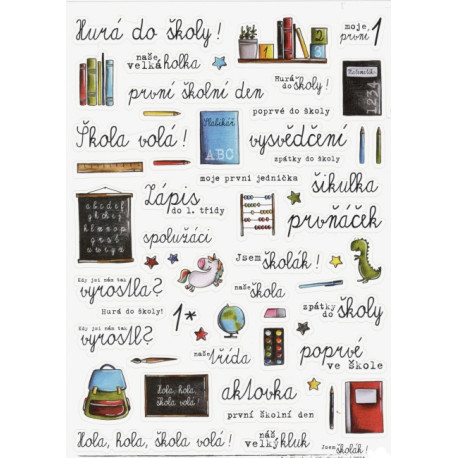 Hurá do školy!
moje
první 1
naše
velkáholka
1
2
3
Hurá
do školy!
první školní den
Matematika
1234
poprvé do školy
Slabikář
ABC
Škola volá!
vysvědčení
zpátky do školy
moje první jednička
šikulka
Zápis
do 1. třídy
prvňáček
abcdef
ghijk
lmnop
qrstu
vwxyz
spolužáci
Jsem školák!
Kdy jsi nám tak
vyrostla?
naše
škola
zpátky
do školy
Hurá do školy!
1*
Kdy jsi nám tak
vyrostl?
naše
třída
poprvé
ve škole
Hola, hola,
škola volá!
aktovka
první školní den
Hola, hola, škola volá!
náš
velkýkluk
Jsem
školák!